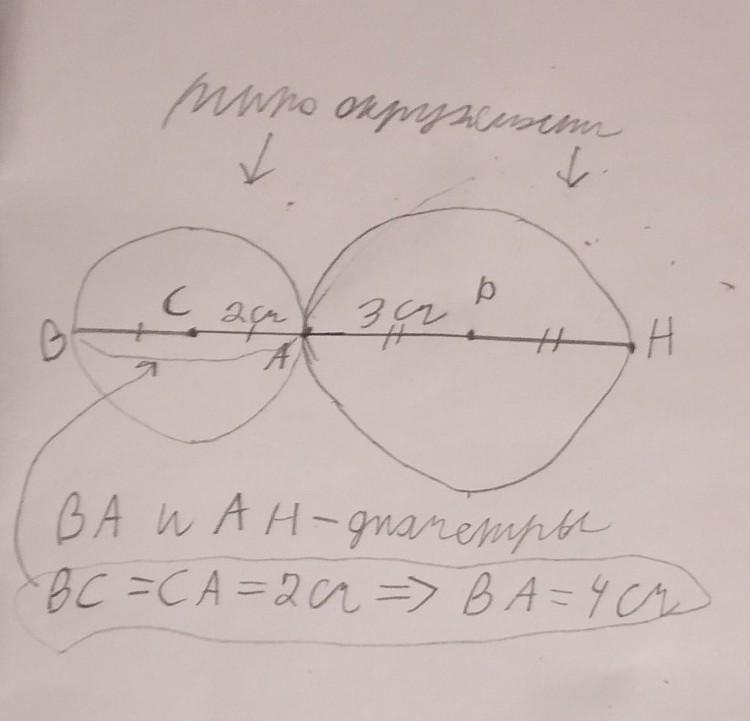 типо окружности
C 2см 3см D
B A H
BA и AH-диаметры
BC=CA=2см => BA=4см